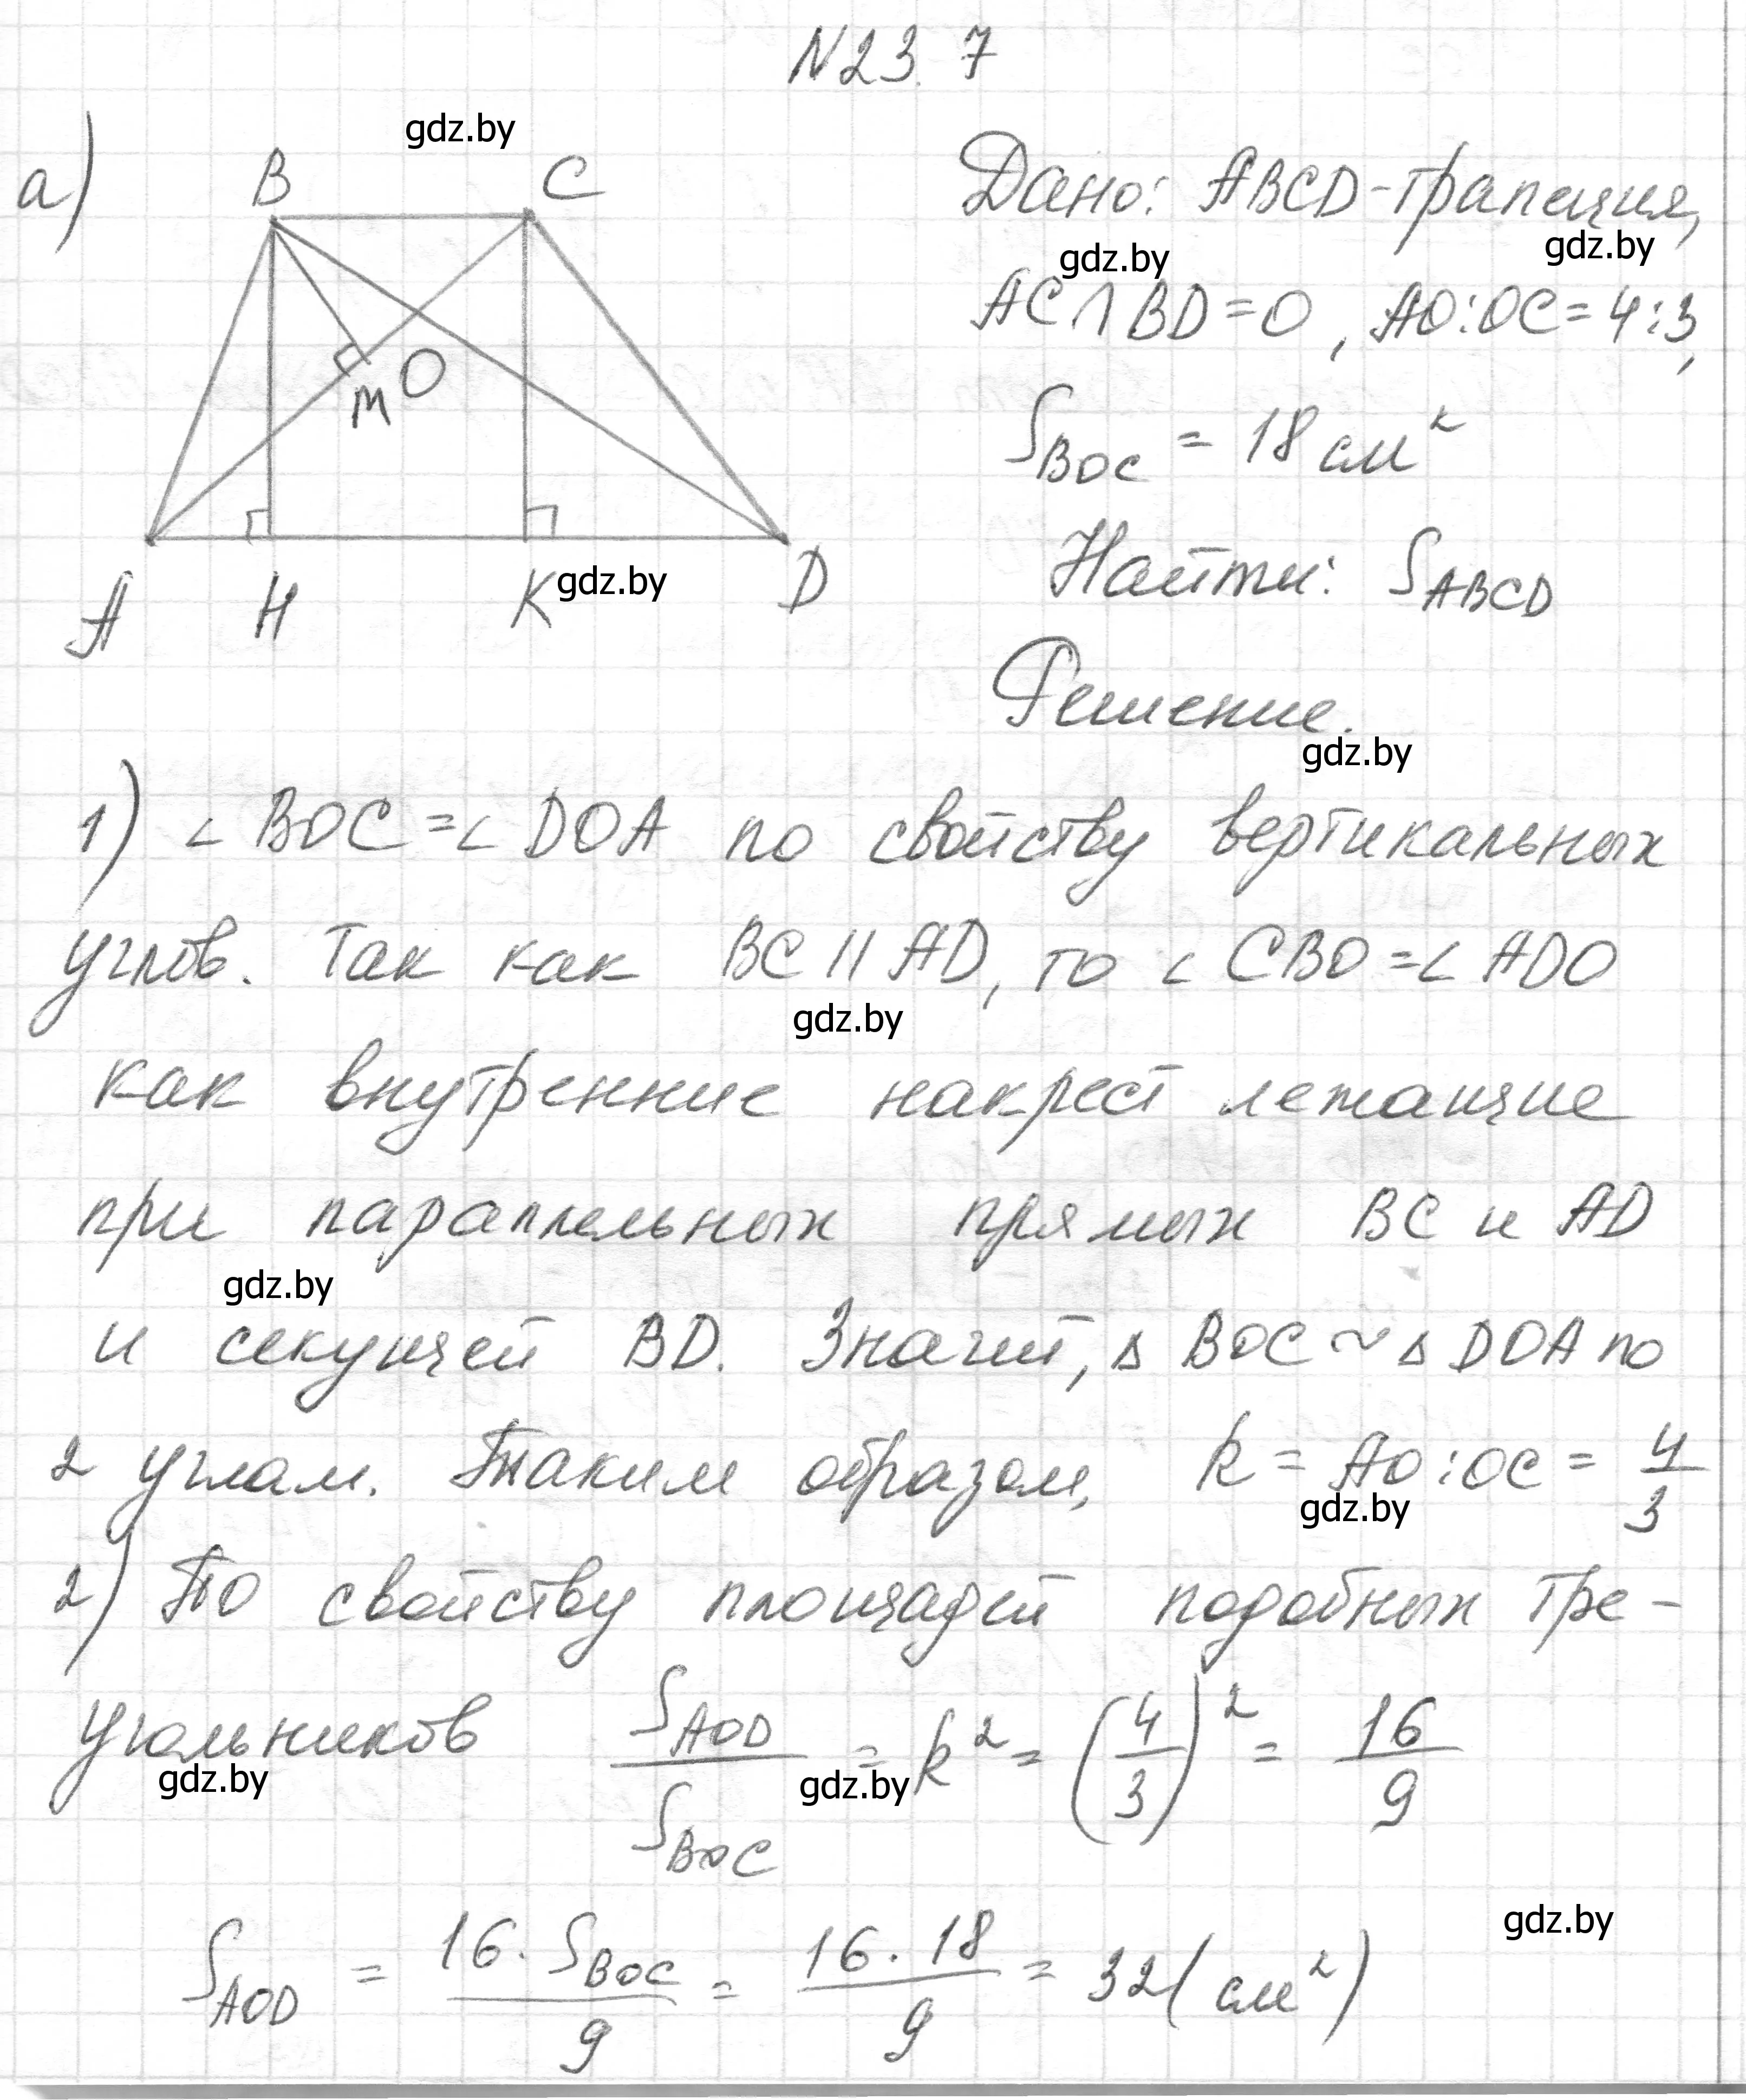 №23.7
а)
gdz.by
B C
Дано: ABCD-трапеция,
gdz.by gdz.by
AC∩BD=O, AO:OC=4:3,
M O
S_BOC = 18 см²
Найти: S_ABCD
A H K gdz.by D
Решение.
gdz.by
1) ∠BOC=∠DOA по свойству вертикальных
углов. Так как BC || AD, то ∠CBO=∠ADO
gdz.by
как внутренние накрест лежащие
при параллельных прямых BC и AD
gdz.by
и секущей BD. Значит, △BOC~△DOA по
2 углам. Таким образом, k = AO:OC = 4/3
gdz.by
2) По свойству площадей подобных тре-
угольников S_AOD/S_BOC = k² = (4/3)² = 16/9
gdz.by gdz.by
gdz.by
S_AOD = 16·S_BOC/9 = 16·18/9 = 32 (см²)